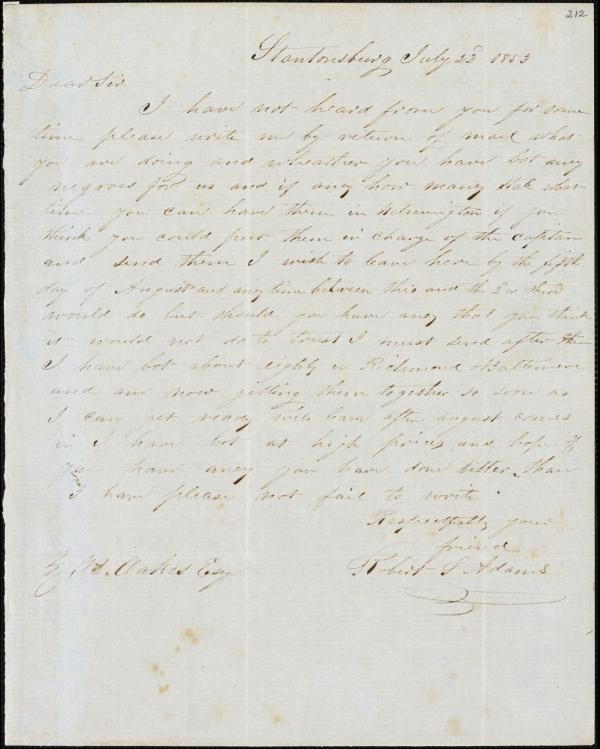 212
Stantonsburg July 22d 1853
Dear Sir
I have not heard from you for some
time please write me by return of mail what
you are doing and wheather you have bot aney
negroes for us and if aney how maney State what
time you can have them in Wilmington if you
think you could put them in charge of the Captain
and send them I wish to leave here by the fifth
day of August and aney time between this and the 2d or third
would do but should you have aney that you think
it would not do to trust I must send after them
I have bot about eighty in Richmond & Baltimore
and am now getting them together so soon as
I can get ready will leave after august comes
in I have bot at high prices and hope if
you have aney you have done better than
I have please not fail to write
Respectfully your
friend
Robert S Adams
Z B. Oakes Esq